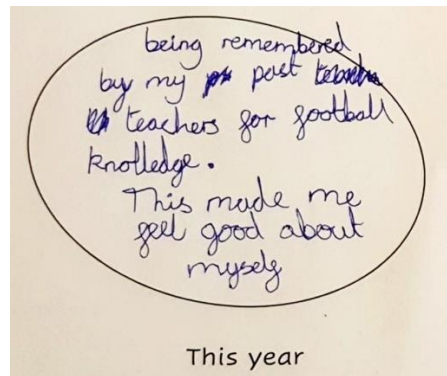 being remembered
by my past
teachers for football
knolledge.
This made me
feel good about
myself
This year